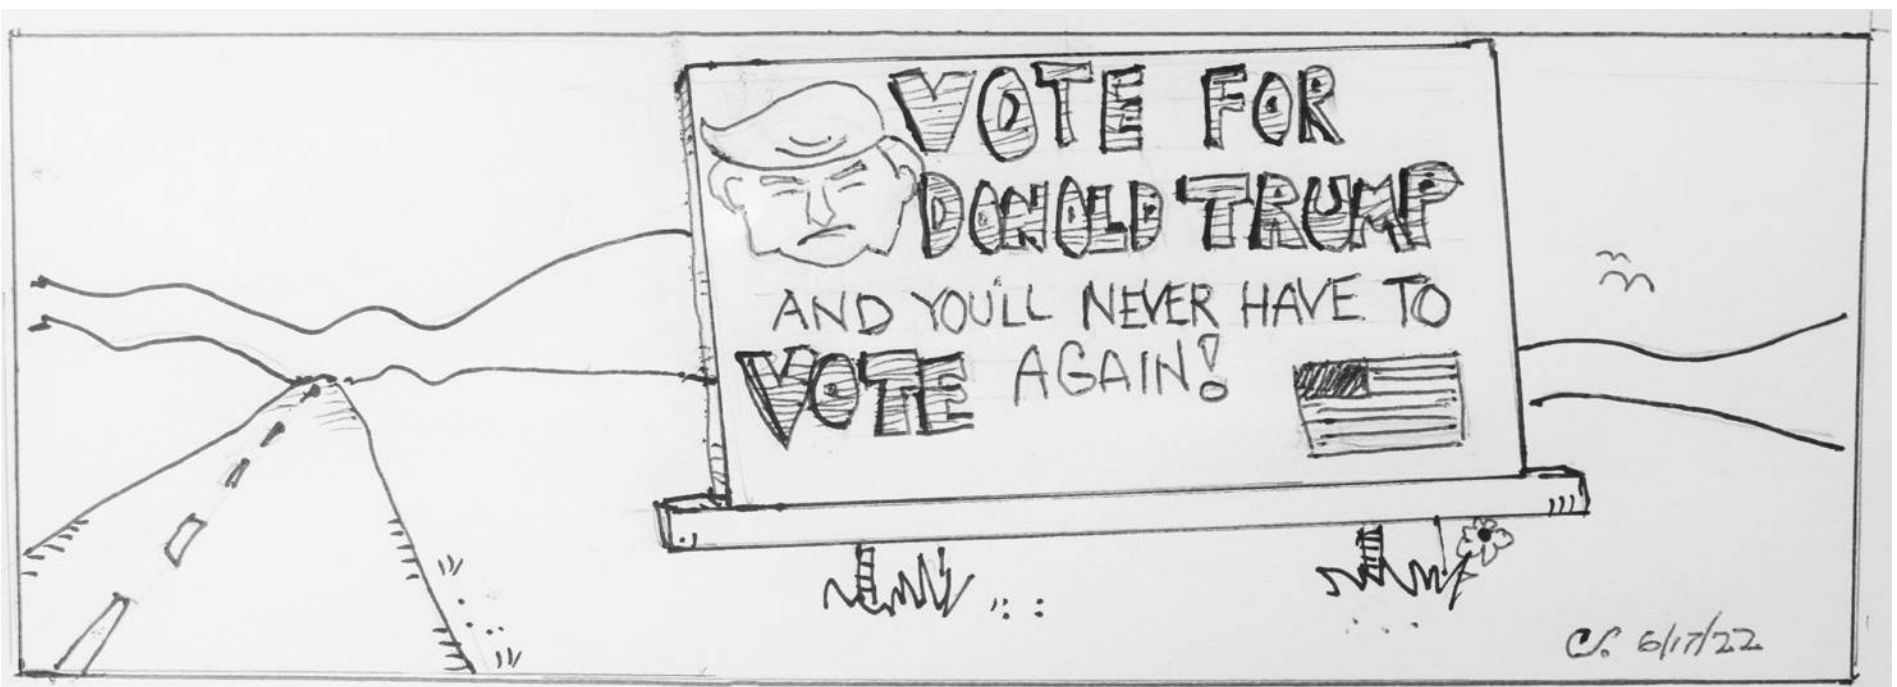 VOTE FOR
DONOLD TRUMP
AND YOU'LL NEVER HAVE TO
VOTE AGAIN!
C.S. 6/17/22